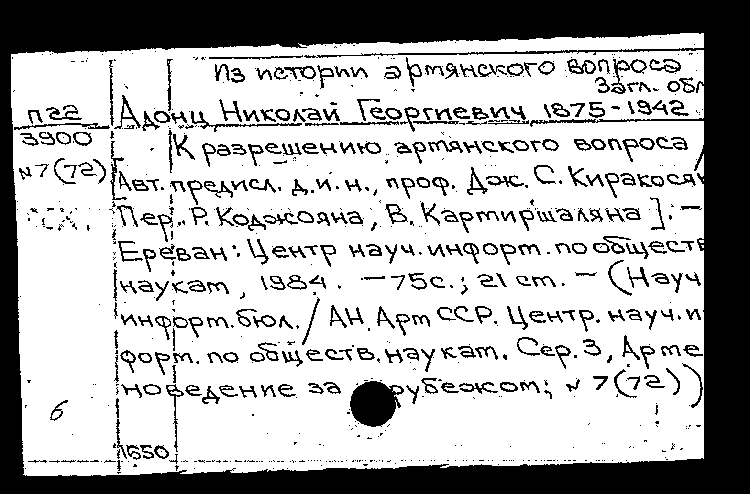 Из истории армянского вопроса
Загл. обл
п22 Адонц Николай Георгиевич 1875-1942
3900 К разрешению армянского вопроса /
№7(72) Авт. предисл. д.и.н., проф. Дж. С. Киракосян
Пер. Р. Коджояна, В. Картиршаляна ]. —
Ереван: Центр науч. информ. по обществ
наукам, 1984. — 75с.; 21 ст. — (Науч
информ. бюл. / АН АртССР. Центр. науч. и
форт. по обществ. наукам. Сер. 3, Арме
новедение за рубежом; № 7(72))
6
1650